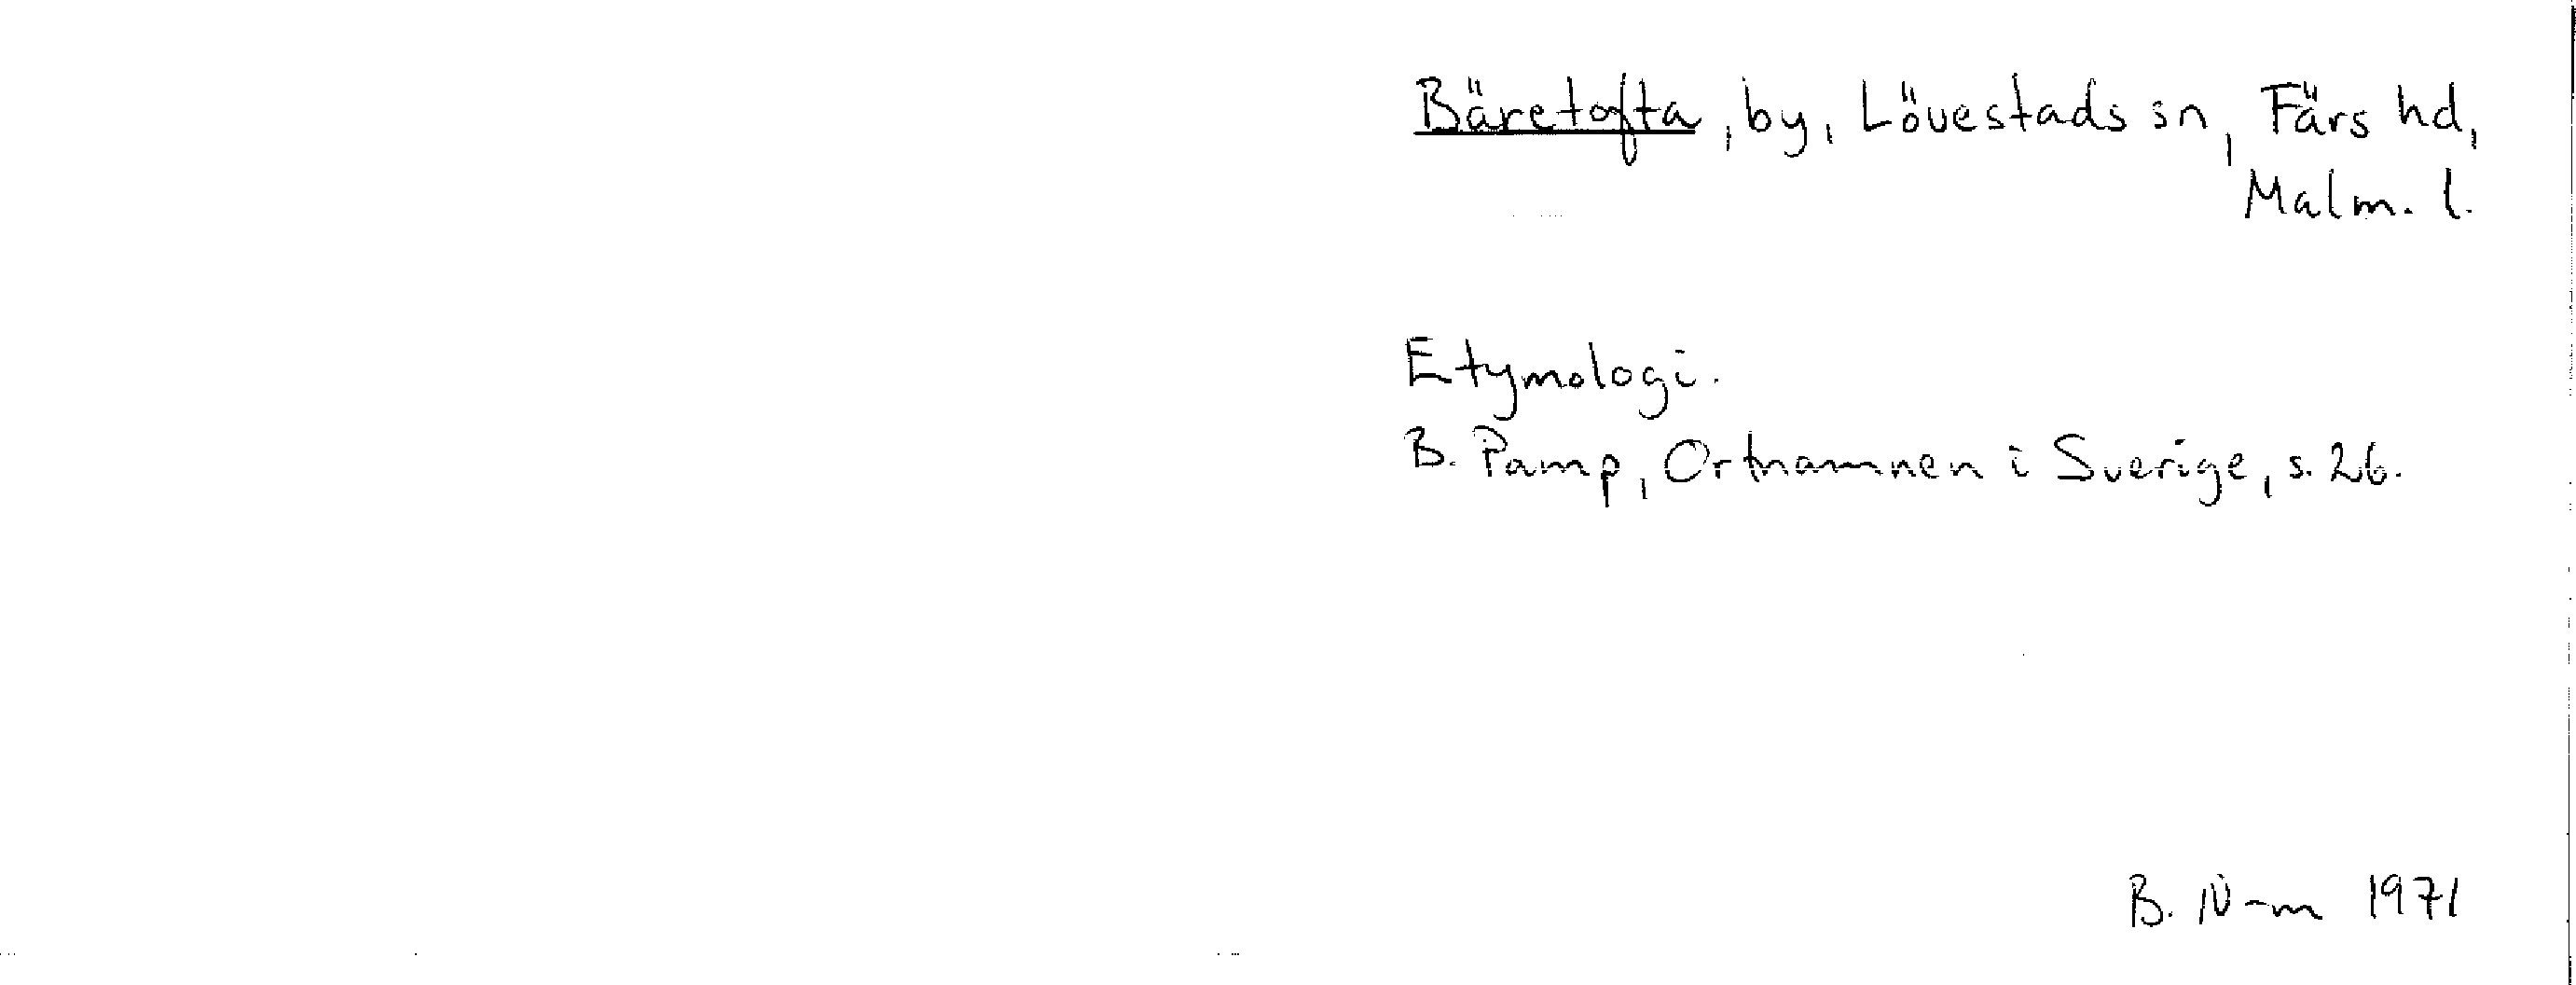 Bäretofta, by, Lövestads sn, Färs hd,
Malm. l.
Etymologi.
B. Pamp, Ortnamnen i Sverige, s. 26.
B. N-m 1971